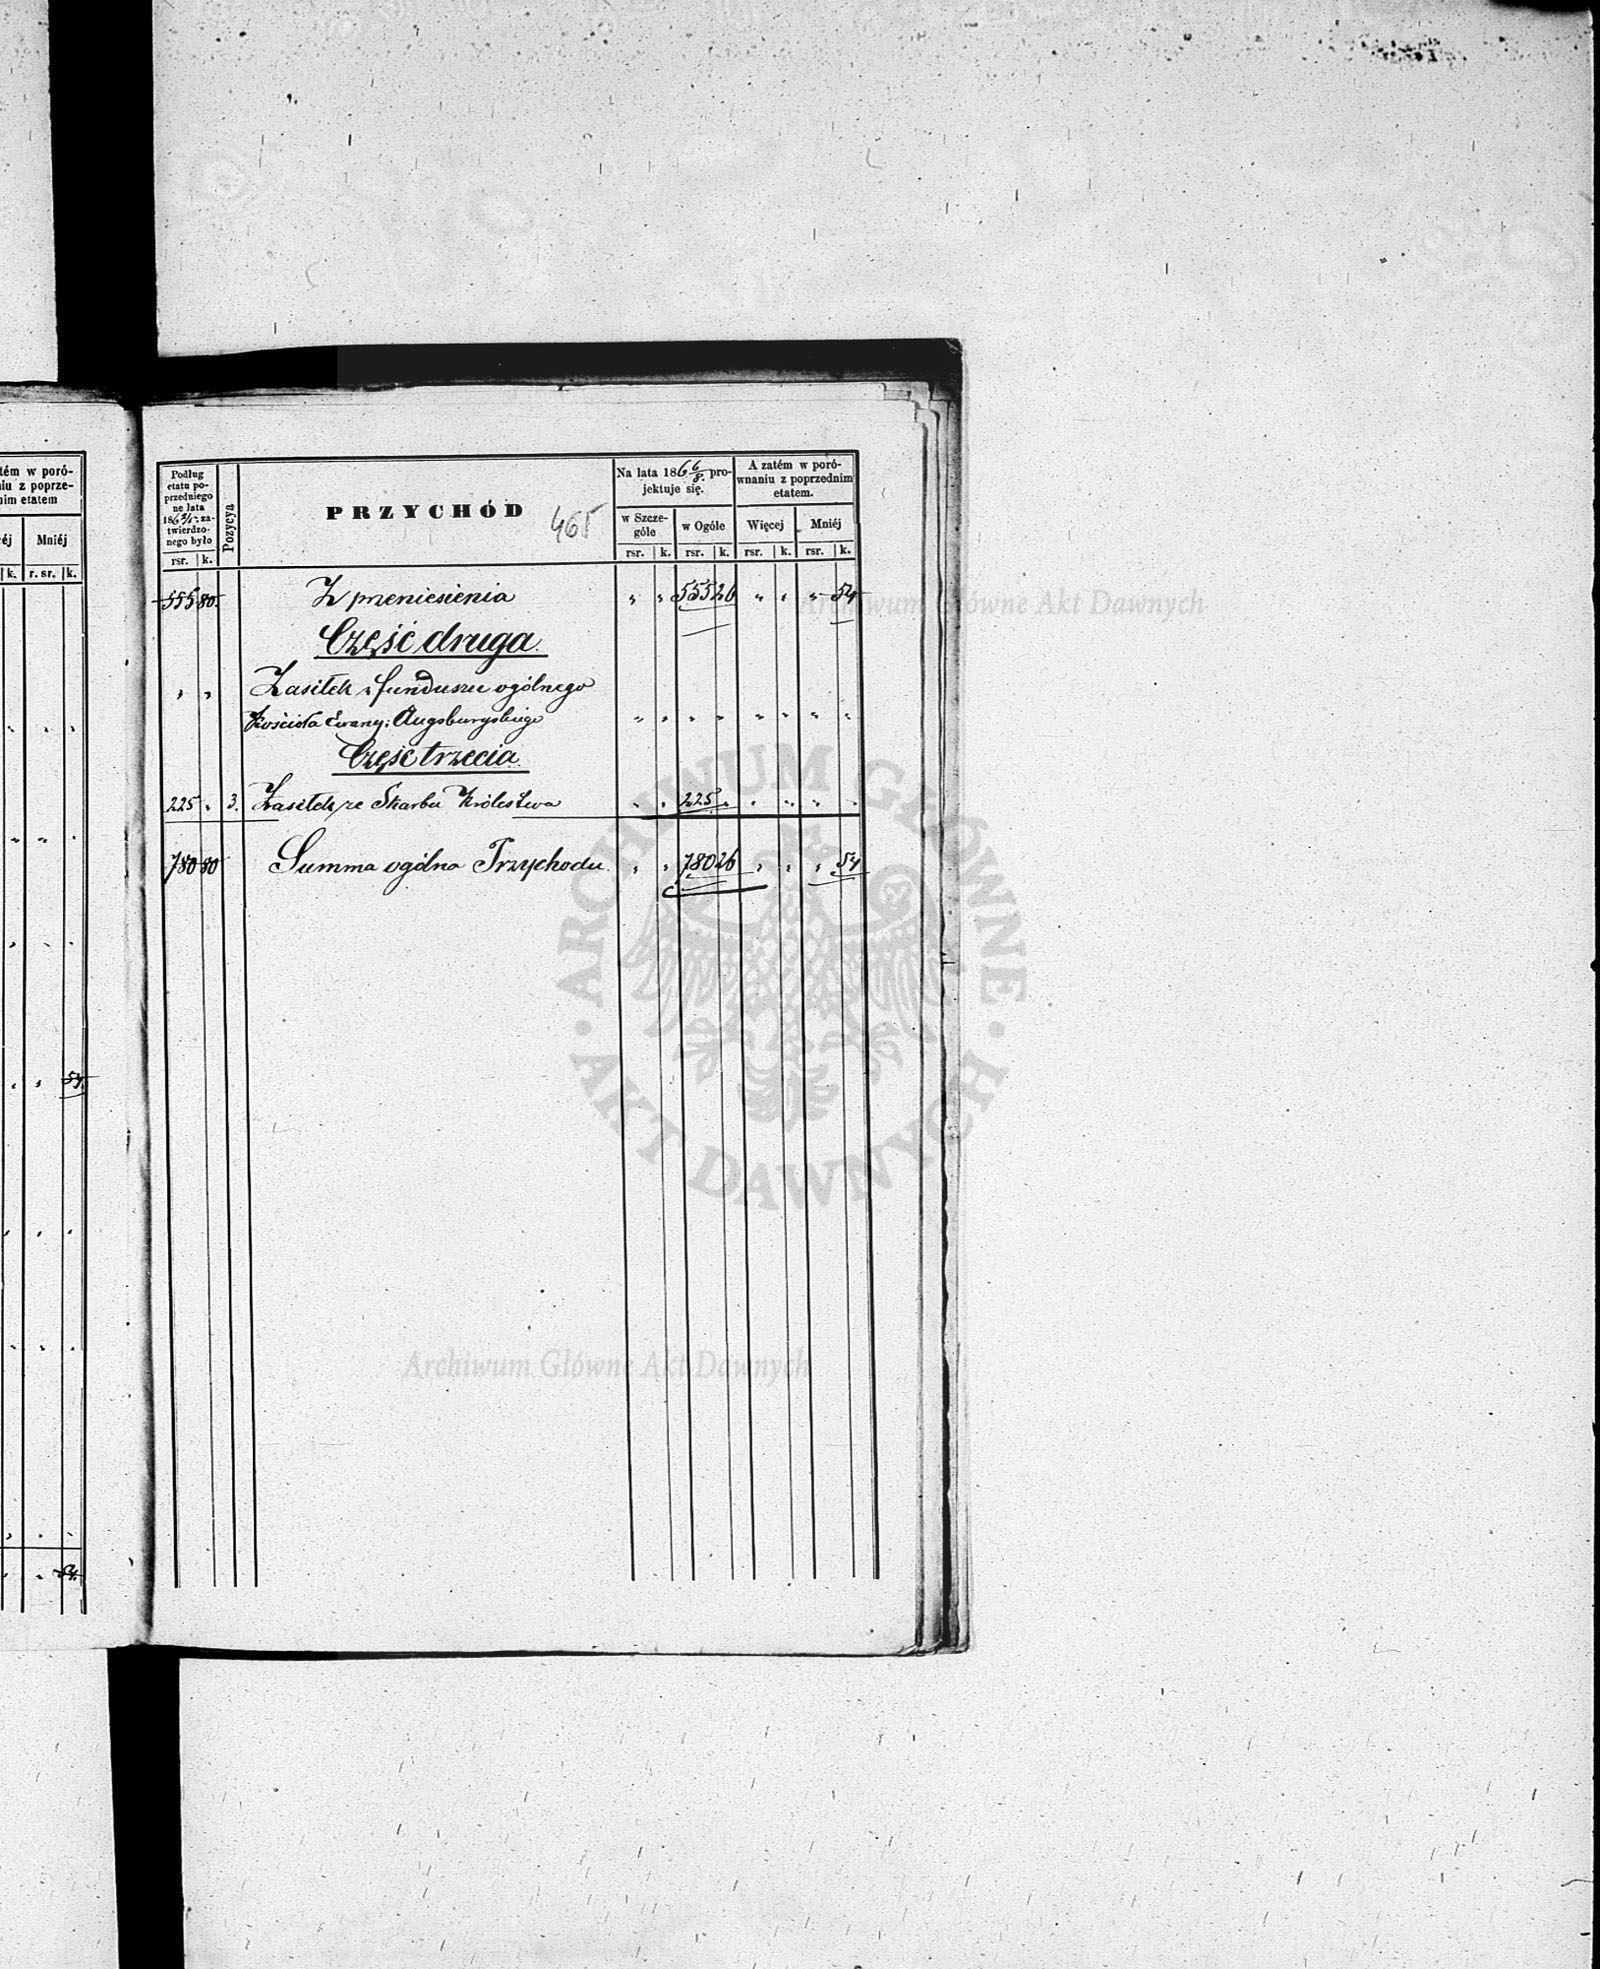 tém w poró-
niu z poprze-
nim etatem
éj | Mniéj
k. | r. sr. | k.
54.
54.
Podług
etatu po-
przedniego
ne lata
186 3/5 za-
twierdzo-
nego było
rsr. | k.
Pozycya
PRZYCHÓD
465
Na lata 186 6/8 pro-
jektuje się.
w Szcze-
góle
w Ogóle
rsr. | k. | rsr. | k.
A zatém w poró-
wnaniu z poprzednim
etatem.
Więcej | Mniéj
rsr. | k. | rsr. | k.
555 80. Z przeniesienia " " 555 26 " " " 54
Część druga.
" " Zasiłek z funduszu ogólnego
Kościoła Ewang: Augsburgskiego " " " " " " " "
Część trzecia.
225 " 3. Zasiłek ze Skarbu Królestwa " " 225 " " " " "
780 80 Summa ogólna Przychodu. " " 780 26 " " " 54
Archiwum Główne Akt Dawnych
ARCHIWUM GŁÓWNE · AKT DAWNYCH ·
Archiwum Główne Akt Dawnych